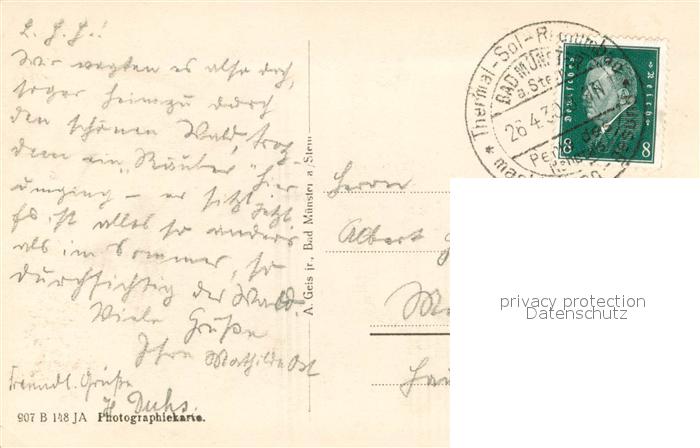 L. H. H.!
Wir wagten es also doch,
sogar heimzu durch
den schönen Wald, trotz-
dem ein „Räuber" hier
umging – er sitzt jetzt
Es ist alles so anders
als im Sommer, so
durchsichtig der Wald.
Viele Grüße
Ihre Mathilde Ost
Freundl. Grüße
H. Duhs.
907 B 148 JA Photographiekarte.
A. Geis jr., Bad Münster a/Stein
Thermal-Sol-Radiumbad
BAD MÜNSTER
a. Stein
26.4.30
Deutsches Reich
8 8
Herrn
Albert
privacy protection
Datenschutz